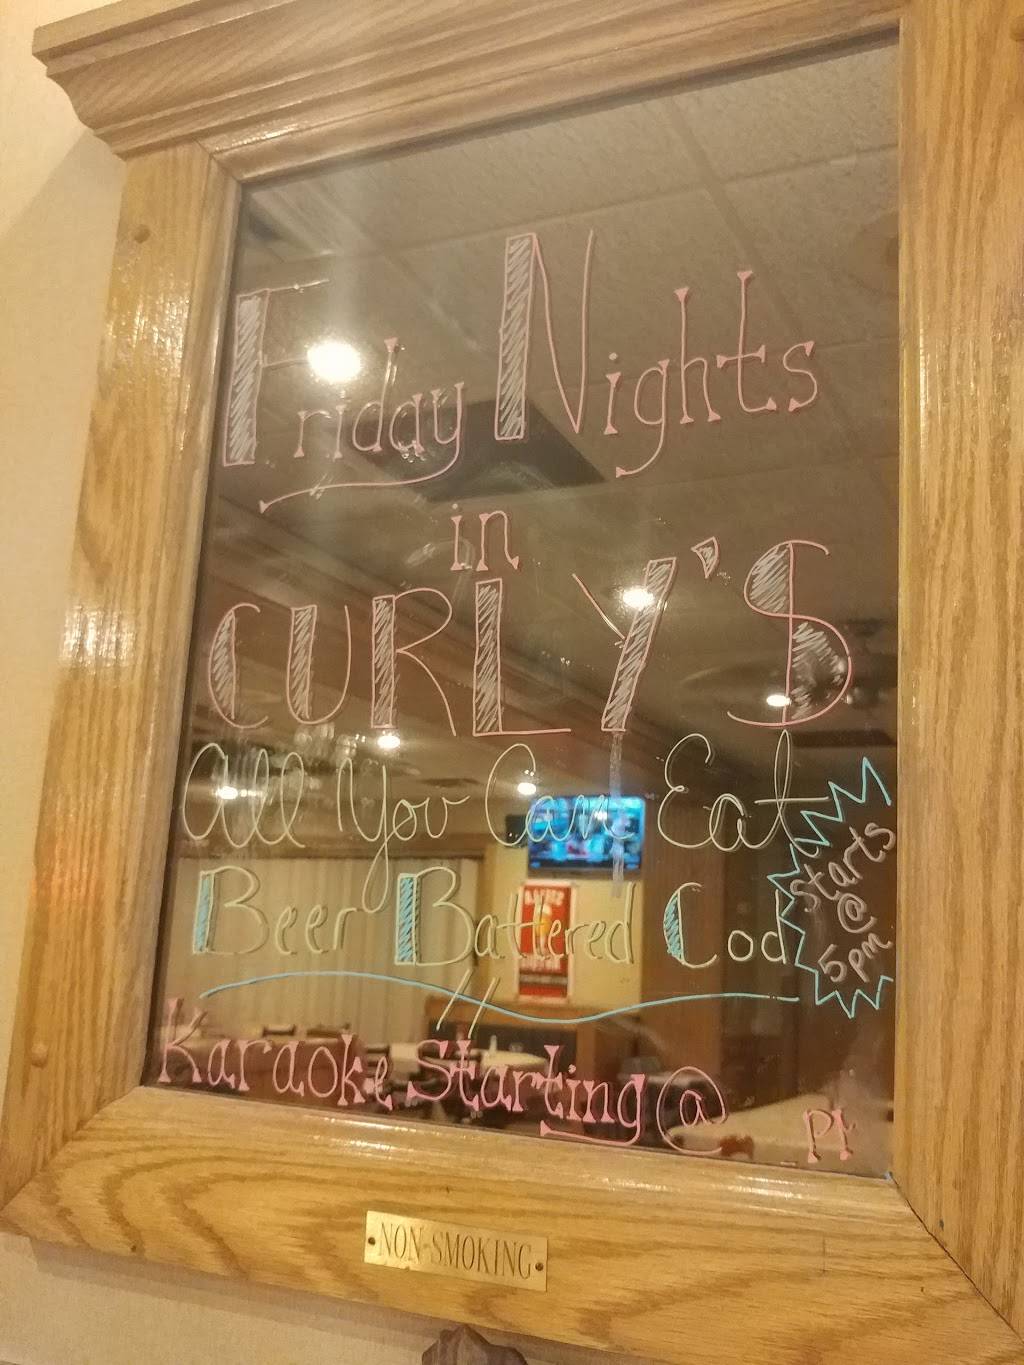 Friday Nights
in
CURLY'S
All You Can Eat
Beer Battered Cod
Starts
@
5pm
Karaoke Starting @
NON-SMOKING